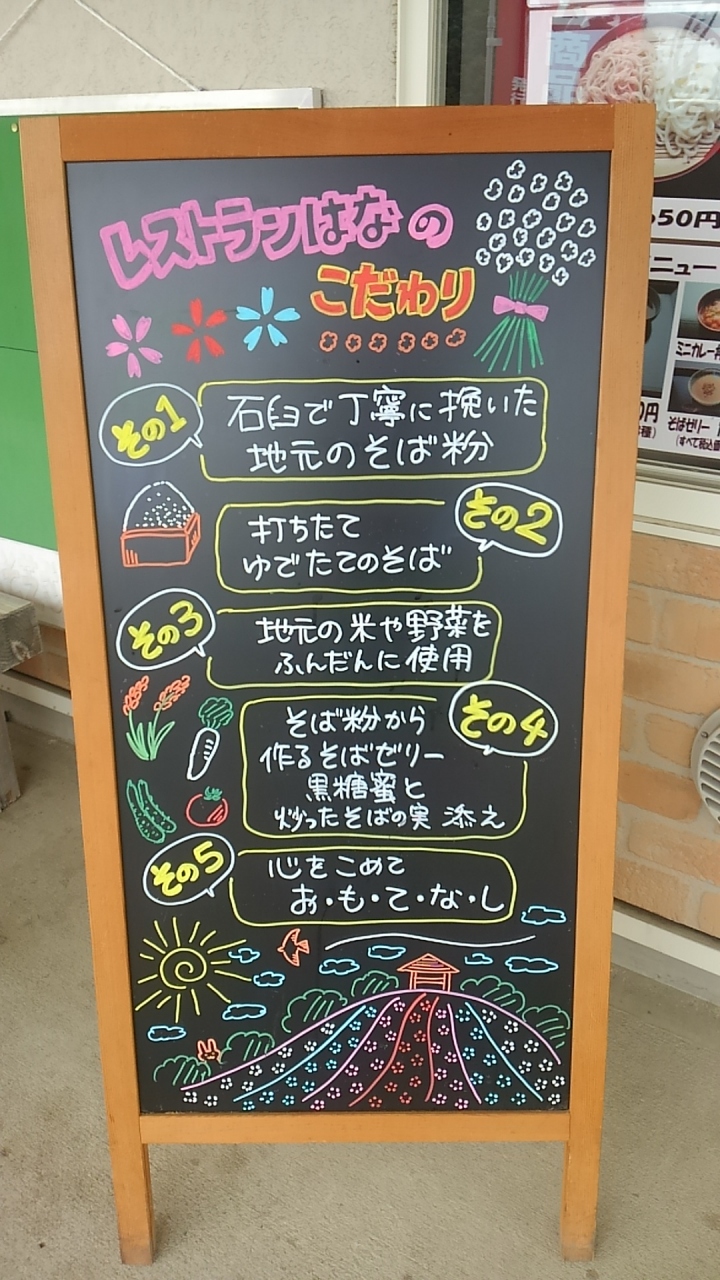 レストランはなの
こだわり
その1
石臼で丁寧に挽いた
地元のそば粉
その2
打ちたて
ゆでたてのそば
その3
地元の米や野菜を
ふんだんに使用
その4
そば粉から
作るそばゼリー
黒糖蜜と
炒ったそばの実 添え
その5
心をこめて
お・も・て・な・し
50円
ニュー
ミニカレー
円
そばゼリー
(すべて税込